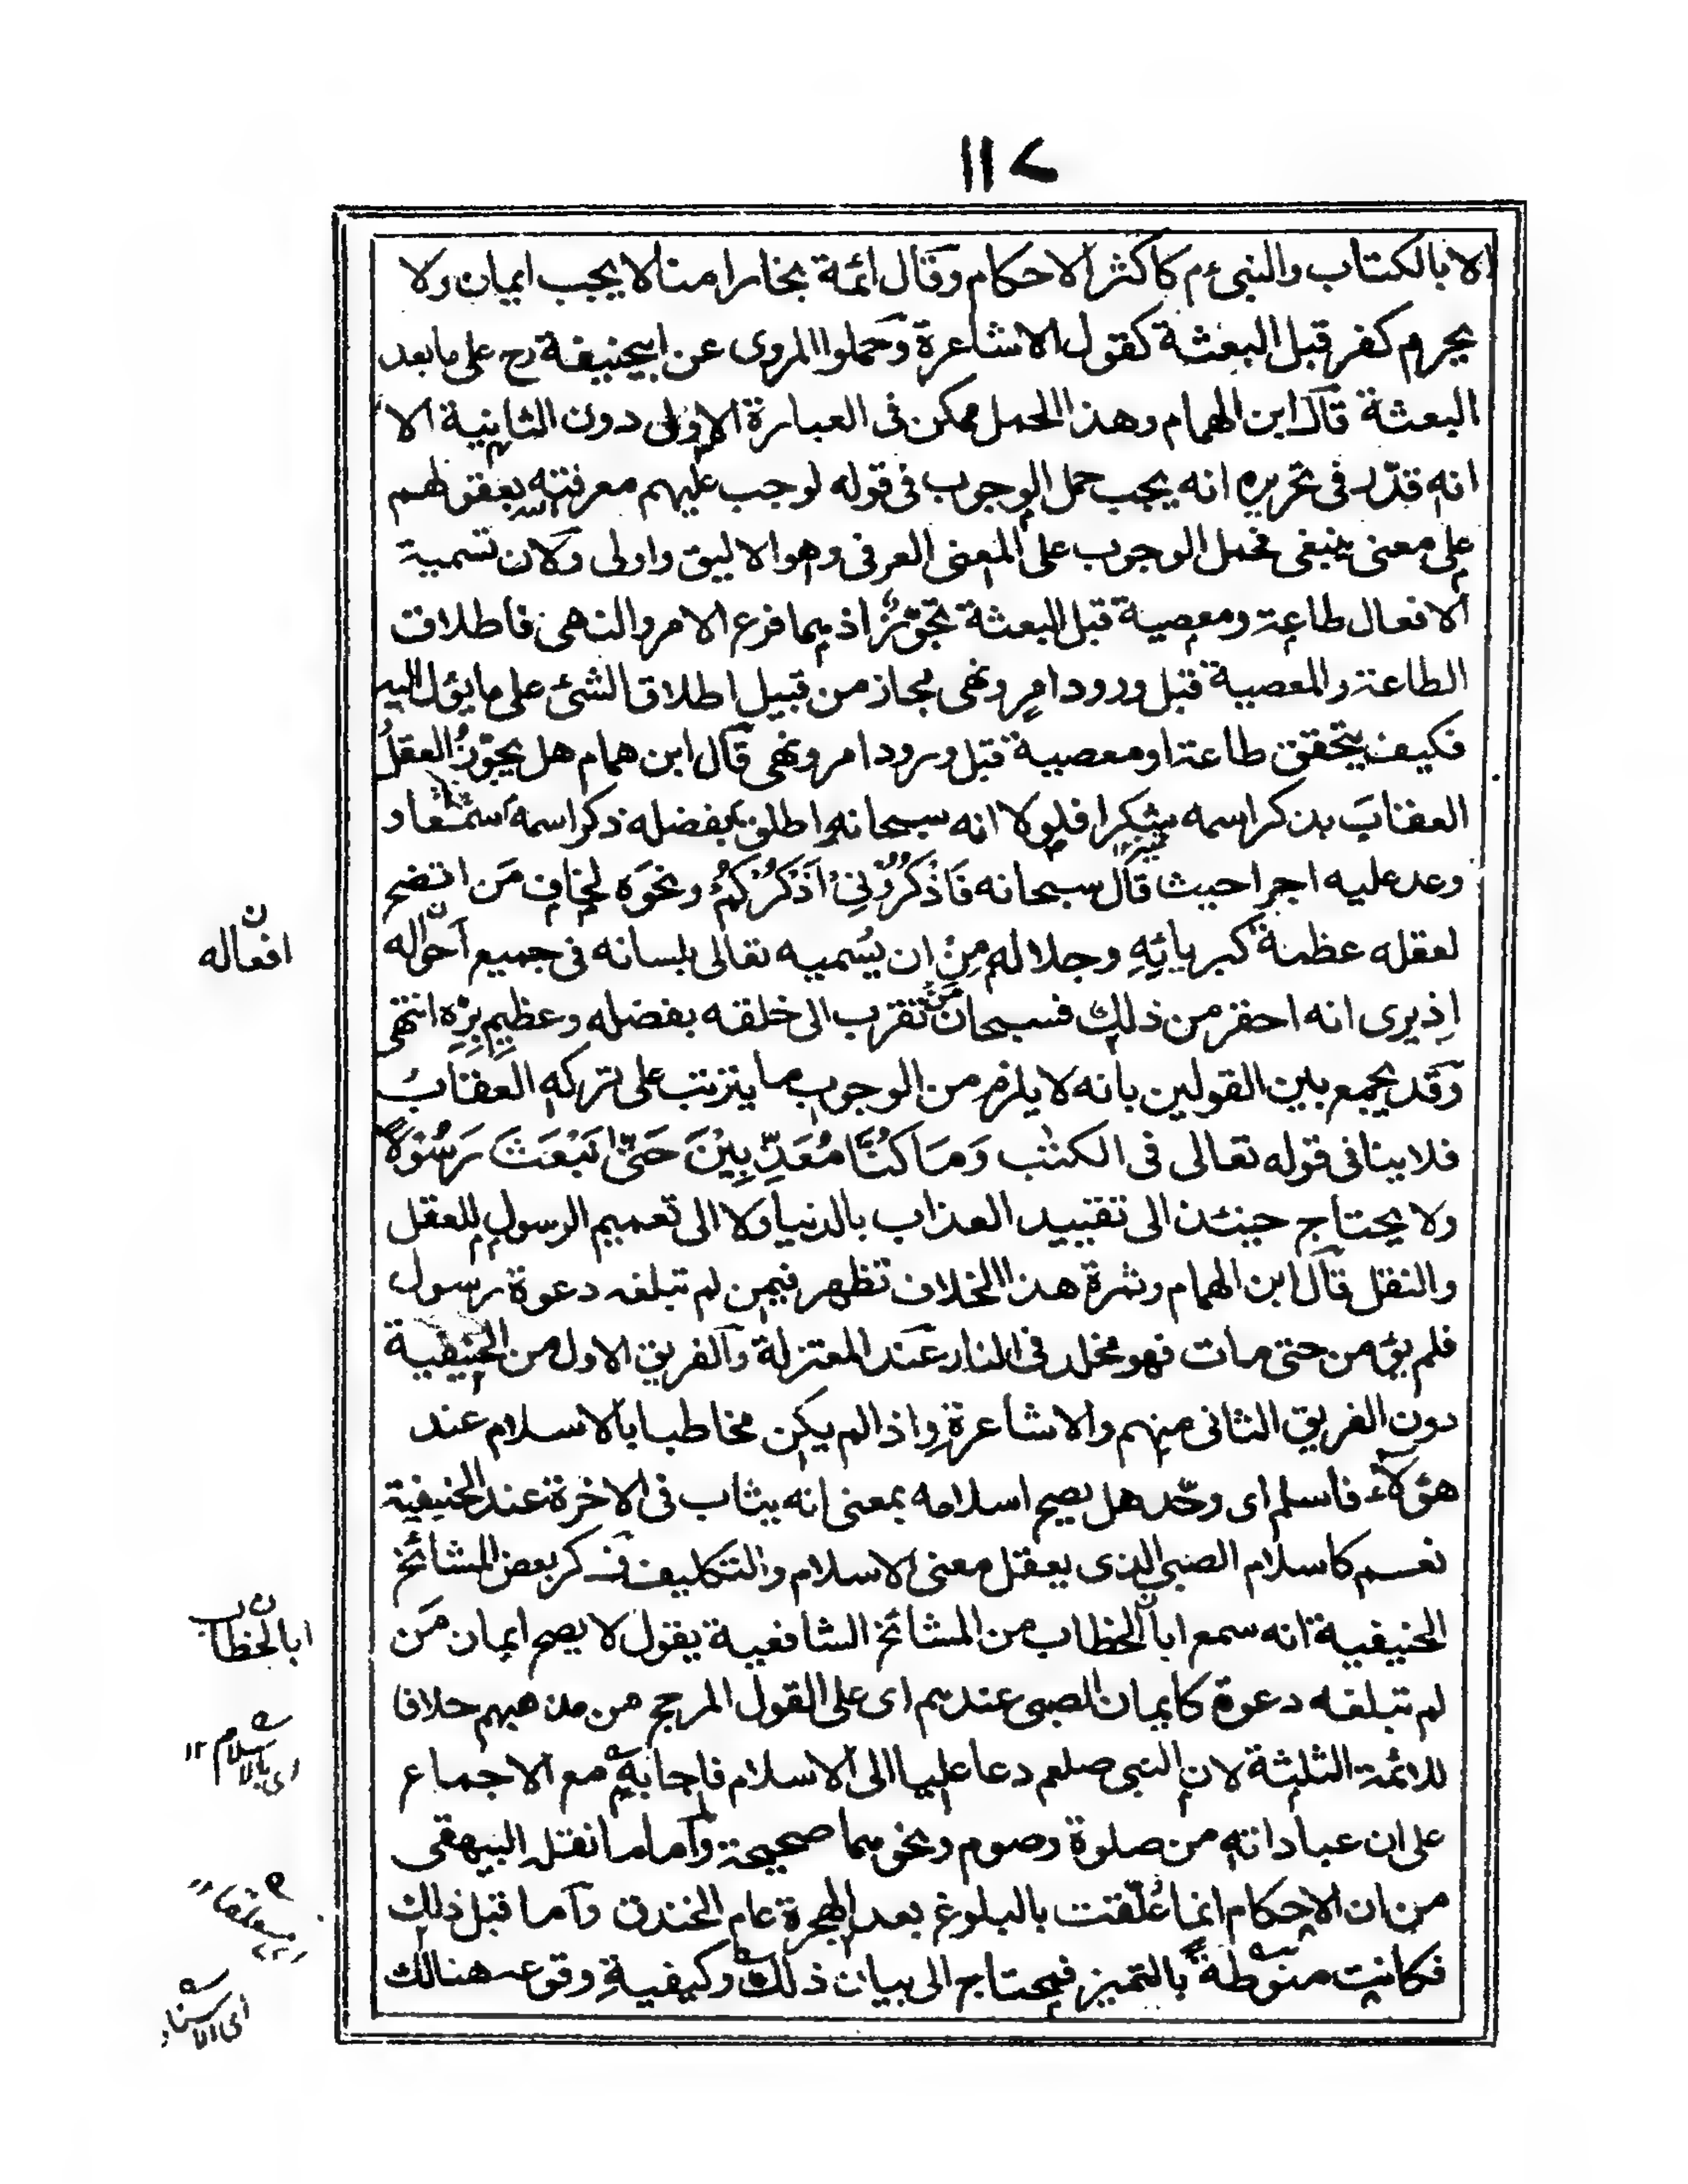 ١١٧
الا بالكتاب والنبي ءم كاكثر الاحكام وقال ائمة بخارا منا لا يجب ايمان ولا
يحرم كفر قبل البعثة كقول الاشاعرة وحملوا المروى عن ابيحنيفة رح على ما بعد
البعثة قال ابن الهمام وهذا الحمل ممكن فى العبارة الاولى دون الثانية الا
انه قدّر فى تحريره انه يجب حمل الوجوب فى قوله لوجب عليهم معرفته بعقولهم
على معنى ينبغى فحمل الوجوب على المعنى العرفى وهو الاليق واولى ولان تسمية
الافعال طاعة ومعصية قبل البعثة تجوّزٌ اذ هما فرع الامر والنهى فاطلاق
الطاعة والمعصية قبل ورود امرٍ ونهى مجاز من قبيل اطلاق الشئ على ما يؤل اليه
فكيف يتحقق طاعة او معصية قبل ورود امر ونهى قال ابن همام هل يجوّزُ العقلُ
العقابَ بذكر اسمه شكرا فلولا انه سبحانه اطلق بفضله ذكر اسمه
وعد عليه اجرا حيث قال سبحانه فَاذْكُرُوْنِىْ اَذْكُرْكُمْ ونحوَه لخاف مَن اتضح
لعقله عظمة كبريائِهِ وجلاله مِنْ ان يُسميه تعالى بلسانه فى جميع احواله
اِذ يرى انه احقر من ذلك فسبحان مَن تقرب الى خلقه بفضله وعظيمِ بِرِّه انتهى
وَقَد يجمع بين القولين بانه لا يلزم من الوجوب ما يترتب على تركه العقابُ
فلا ينافى قوله تعالى فى الكتٰب وَمَا كُنَّا مُعَذِّبِيْنَ حَتّٰى نَبْعَثَ رَسُوْلًا
ولا يحتاج حينئذ الى تقييد العذاب بالدنيا ولا الى تعميم الرسول للعقل
والنقل قال ابن الهمام وثمرة هذا الخلاف تظهر فيمن لم تبلغه دعوة رسول
فلم يؤمن حتى مات فهو مخلد فى النار عند المعتزلة والفريق الاول من الحنيفية
دون الفريق الثانى منهم والاشاعرة واذا لم يكن مخاطبا بالاسلام عند
هؤلاء فاسلم اى وحّد هل يصح اسلامه بمعنى انه يثاب فى الاخرة عند الحنيفية
نعم كاسلام الصبى الذى يعقل معنى الاسلام والتكليف فذكر بعض المشائخ
الحنيفية انه سمع ابا الخطاب من المشائخ الشافعية يقول لا يصح ايمان مَن
لم تبلغه دعوة كايمان الصبى عندهم اى على القول المرجح من مذهبهم خلافا
للائمة الثلثة لان النبى صلعم دعا عليا الى الاسلام فاجابه مع الاجماع
على ان عباداته من صلوة وصوم ونحوهما صحيحة واما ما نقل البيهقى
من ان الاحكام انما عُلّقت بالبلوغ بعد الهجرة عام الخندق واما قبل ذلك
فكانت منوطة بالتميز فيحتاج الى بيان ذلك وكيفية وقوعه هنالك
ن
افعاله
ن ب
ابا الخطاب
اى بالاسلام ١٢
اى الاسناد